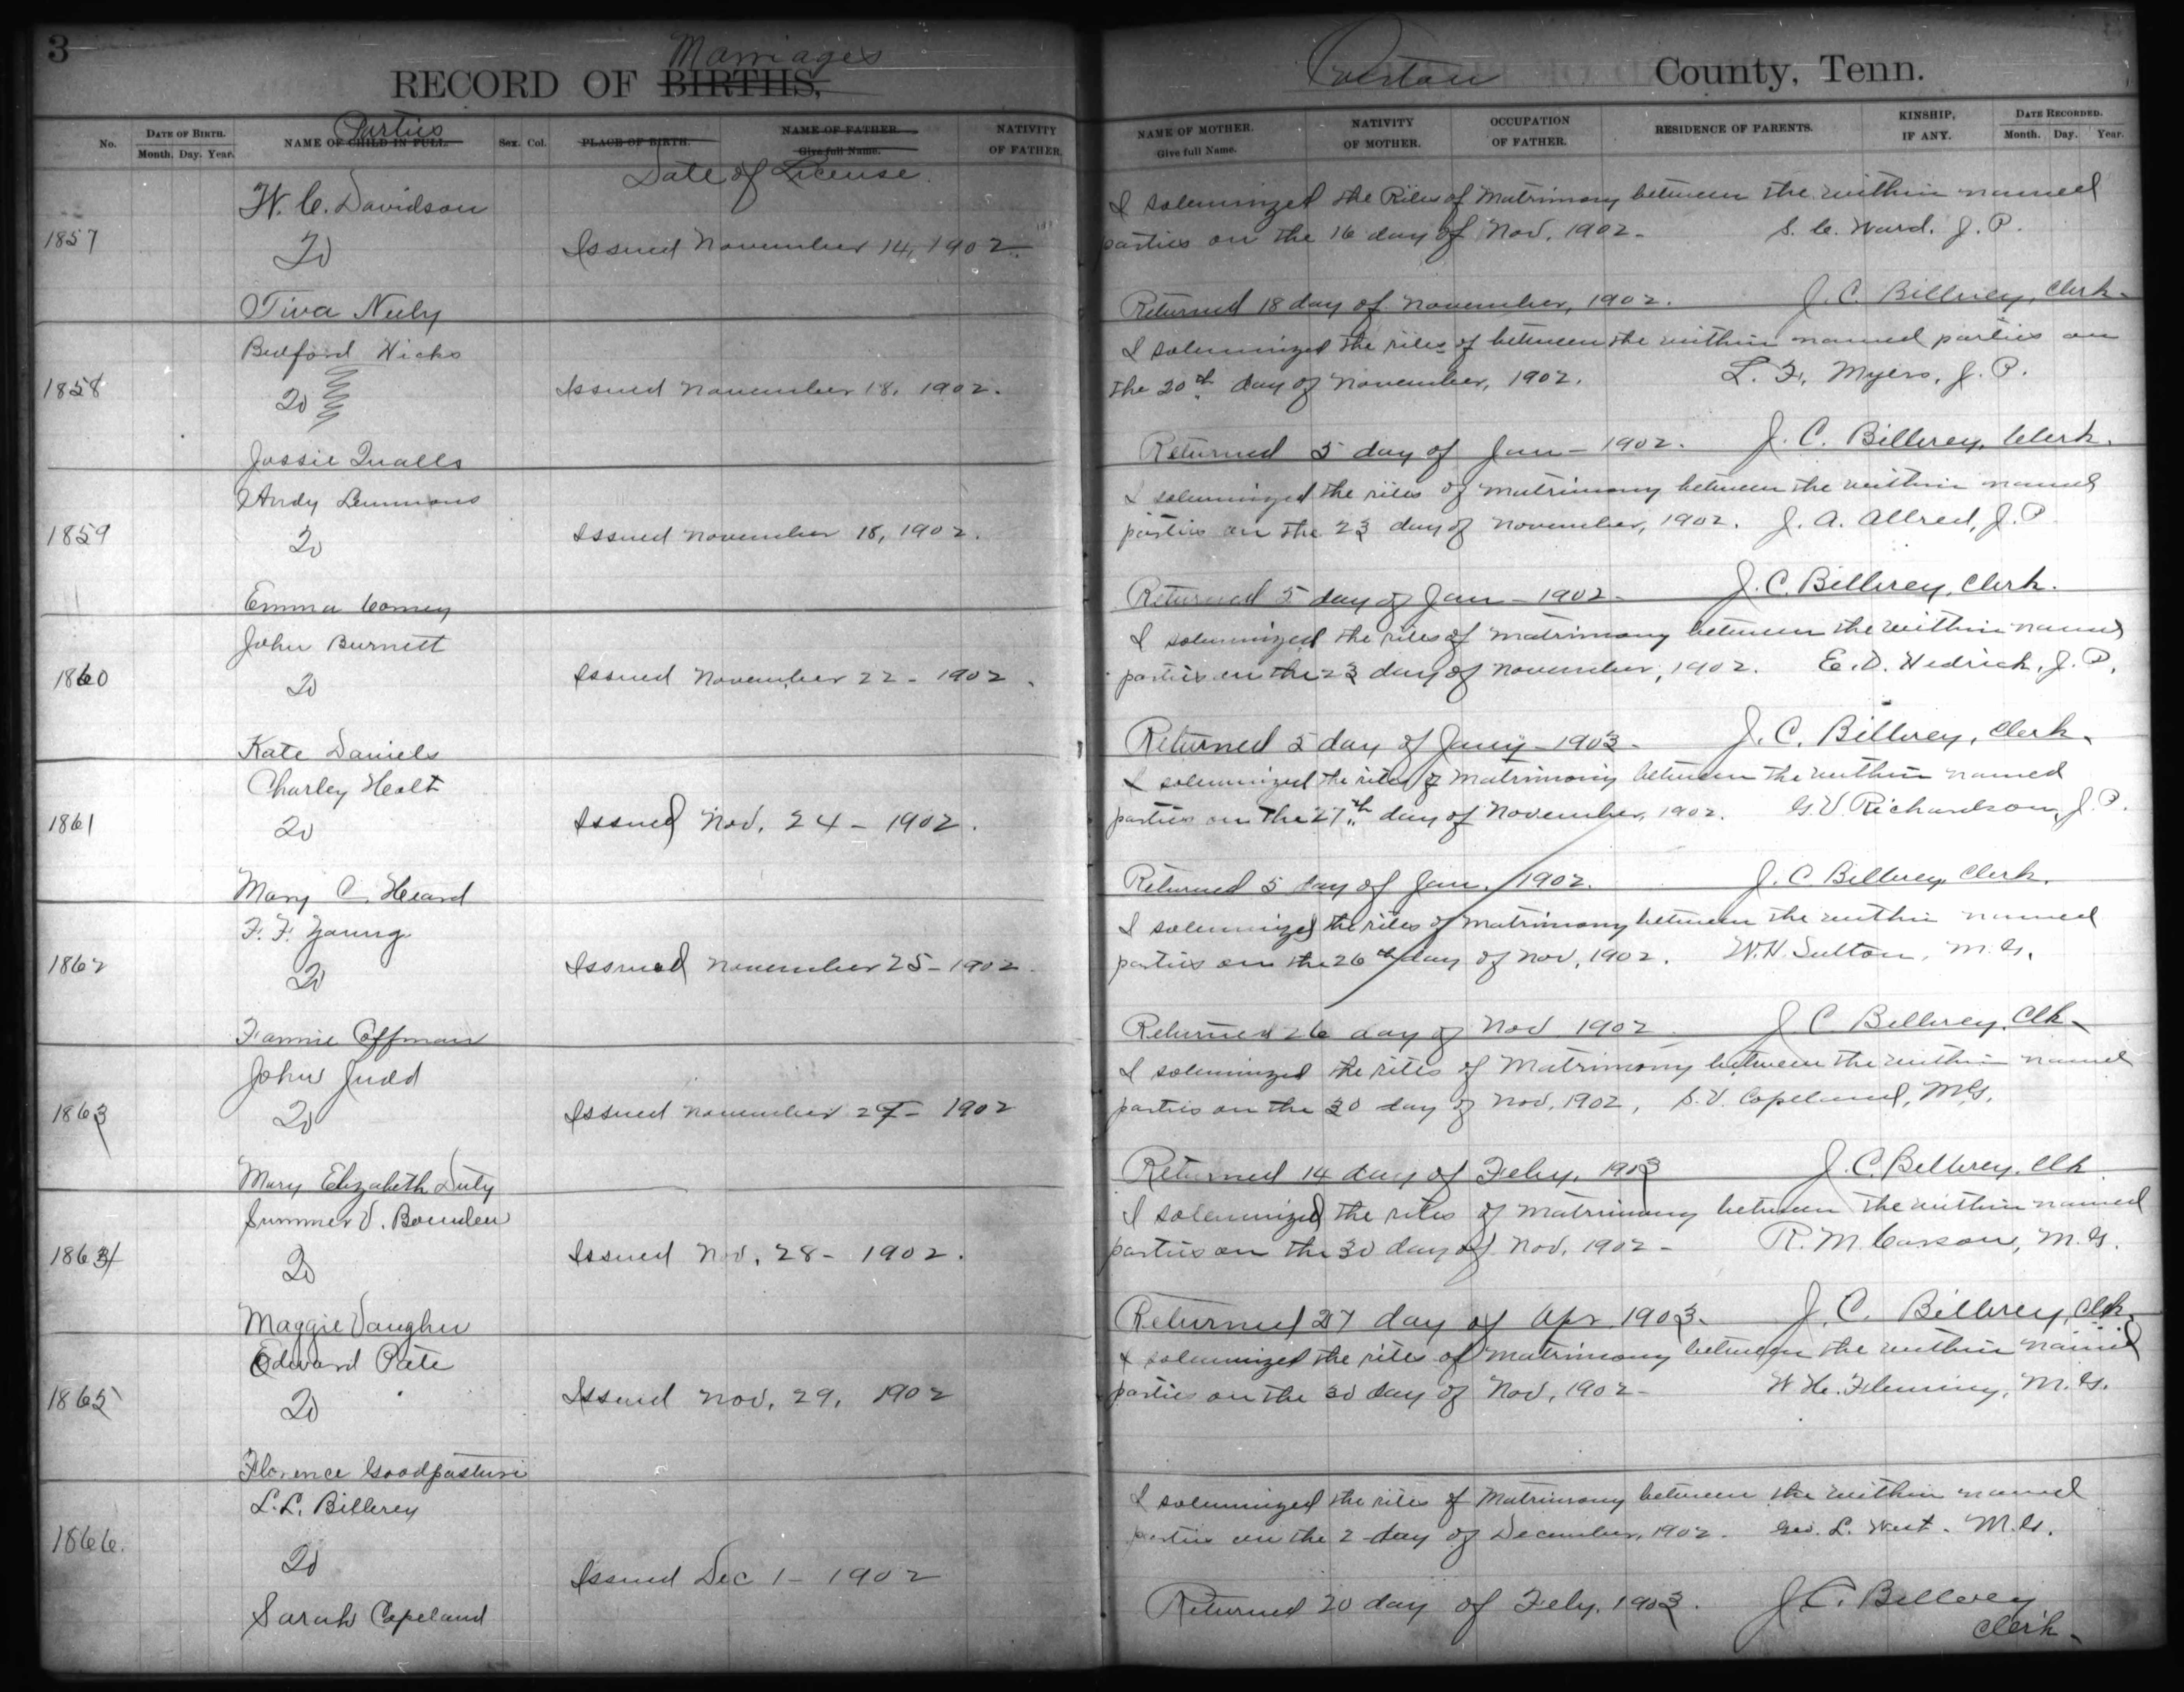 3
Marriages
RECORD OF BIRTHS,
No.
DATE OF BIRTH.
Month. Day. Year.
Parties
NAME OF CHILD IN FULL.
Sex. Col.
PLACE OF BIRTH.
NAME OF FATHER.
Give full Name.
NATIVITY
OF FATHER.
Date of License.
W. C. Davidson
1857
To
Issued November 14, 1902.
Tiva Neely
Bedford Hicks
1858
To
Issued November 18, 1902.
Jossie Qualls
Andy Lemmons
1859
To
Issued November 18, 1902.
Emma
John Burnett
1860
To
Issued November 22 - 1902.
Kate Daniels
Charley Holt
1861
To
Issued Nov. 24 - 1902.
Mary C. Heard
F. F. Young
1862
To
Issued November 25 - 1902.
Fannie Coffman
John Judd
1863
To
Issued November 27 - 1902
Mary Elizabeth Duty
Summer V. Bowden
1864
To
Issued Nov. 28 - 1902.
Maggie Vaughn
Edward Pate
1865
To
Issued Nov. 29, 1902
Florence Goodpasture
L. L. Bilbrey
1866.
To
Issued Dec 1 - 1902
Sarah Copeland
Overton County, Tenn.
NAME OF MOTHER.
Give full Name.
NATIVITY
OF MOTHER.
OCCUPATION
OF FATHER.
RESIDENCE OF PARENTS.
KINSHIP,
IF ANY.
DATE RECORDED.
Month. Day. Year.
I solemnized the Rites of Matrimony between the within named
parties on the 16 day of Nov. 1902. S. C. Ward. J. P.
Returned 18 day of November, 1902. J. C. Bilbrey, Clerk.
I solemnized the rites of between the within named parties on
the 20th day of November, 1902. L. F. Myers, J. P.
Returned 5 day of Jan - 1902. J. C. Bilbrey, Clerk.
I solemnized the rites of matrimony between the within named
parties on the 23 day of November, 1902. J. A. Allred, J. P.
Returned 5 day of Jan - 1902. J. C. Bilbrey, Clerk.
I solemnized the rites of matrimony between the within named
parties on the 23 day of November, 1902. E. D. Hedrick, J. P.
Returned 5 day of Jany - 1903. J. C. Bilbrey, Clerk.
I solemnized the rites of Matrimony between the within named
parties on the 27th day of November, 1902. G. V. Richardson, J. P.
Returned 5 day of Jan. 1902. J. C. Bilbrey Clerk.
I solemnized the rites of Matrimony between the within named
parties on the 26th day of Nov, 1902. W. H. Sutton, M. G.
Returned 26 day of Nov 1902. J C Bilbrey, Clk.
I solemnized the rites of Matrimony between the within named
parties on the 30 day of Nov. 1902, S. V. Copeland, M.G.
Returned 14 day of Feby. 1903 J. C. Bilbrey. Clk
I solemnized the rites of Matrimony between the within named
parties on the 30 day of Nov, 1902 - R. M. Carson, M. G.
Returned 27 day of Apr. 1903. J. C. Bilbrey, Clk.
I solemnized the rites of matrimony between the within named
parties on the 30 day of Nov, 1902 - W. H. Fleming, M. G.
I solemnized the rites of Matrimony between the within named
parties on the 2 day of December, 1902. Geo. L. West. M. G.
Returned 20 day of Feby. 1903. J. C. Bilbrey
Clerk.